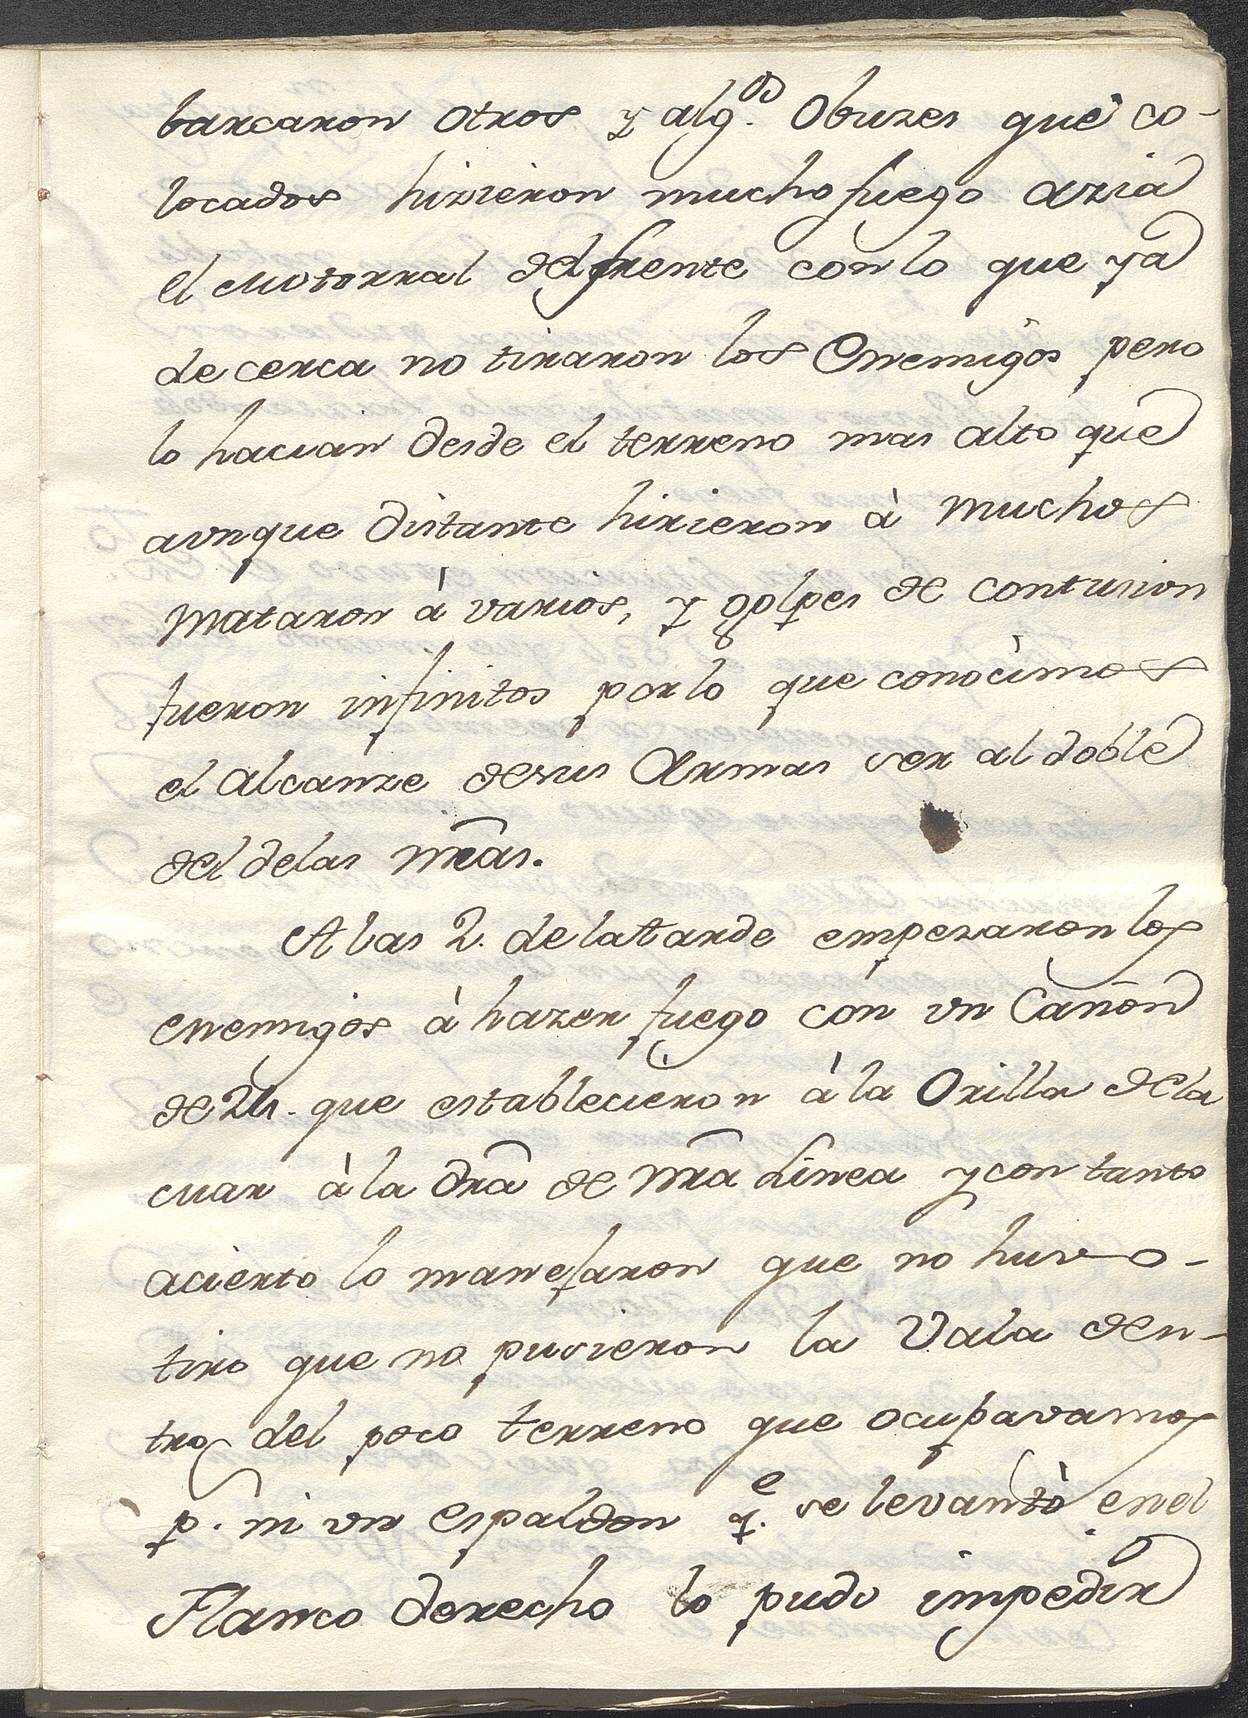 barcaron otros y alg.os Obuzes que co-
locados hizieron mucho fuego azia
el Motorral del frente con lo que ya
de cerca no tiraron los Enemigos pero
lo hacian desde el terreno mas alto que
aunque distante hirieron à muchos
mataron à varios, y golpes de contusion
fueron infinitos por lo que conocimos
el alcanze de sus Armas ser al doble
del de las nrãs.
A las 2. de la tarde empezaron los
enemigos à hazer fuego con un Cañon
de 24. que establecieron à la Orilla de la
mar à la drã de nrã Linea y con tanto
acierto lo manejaron que no huvo-
tiro que no pusieron la Vala den-
tro del poco terreno que ocupavamos
p. ni un espaldon q.e se levantò en el
Flanco derecho lo pudo impedir